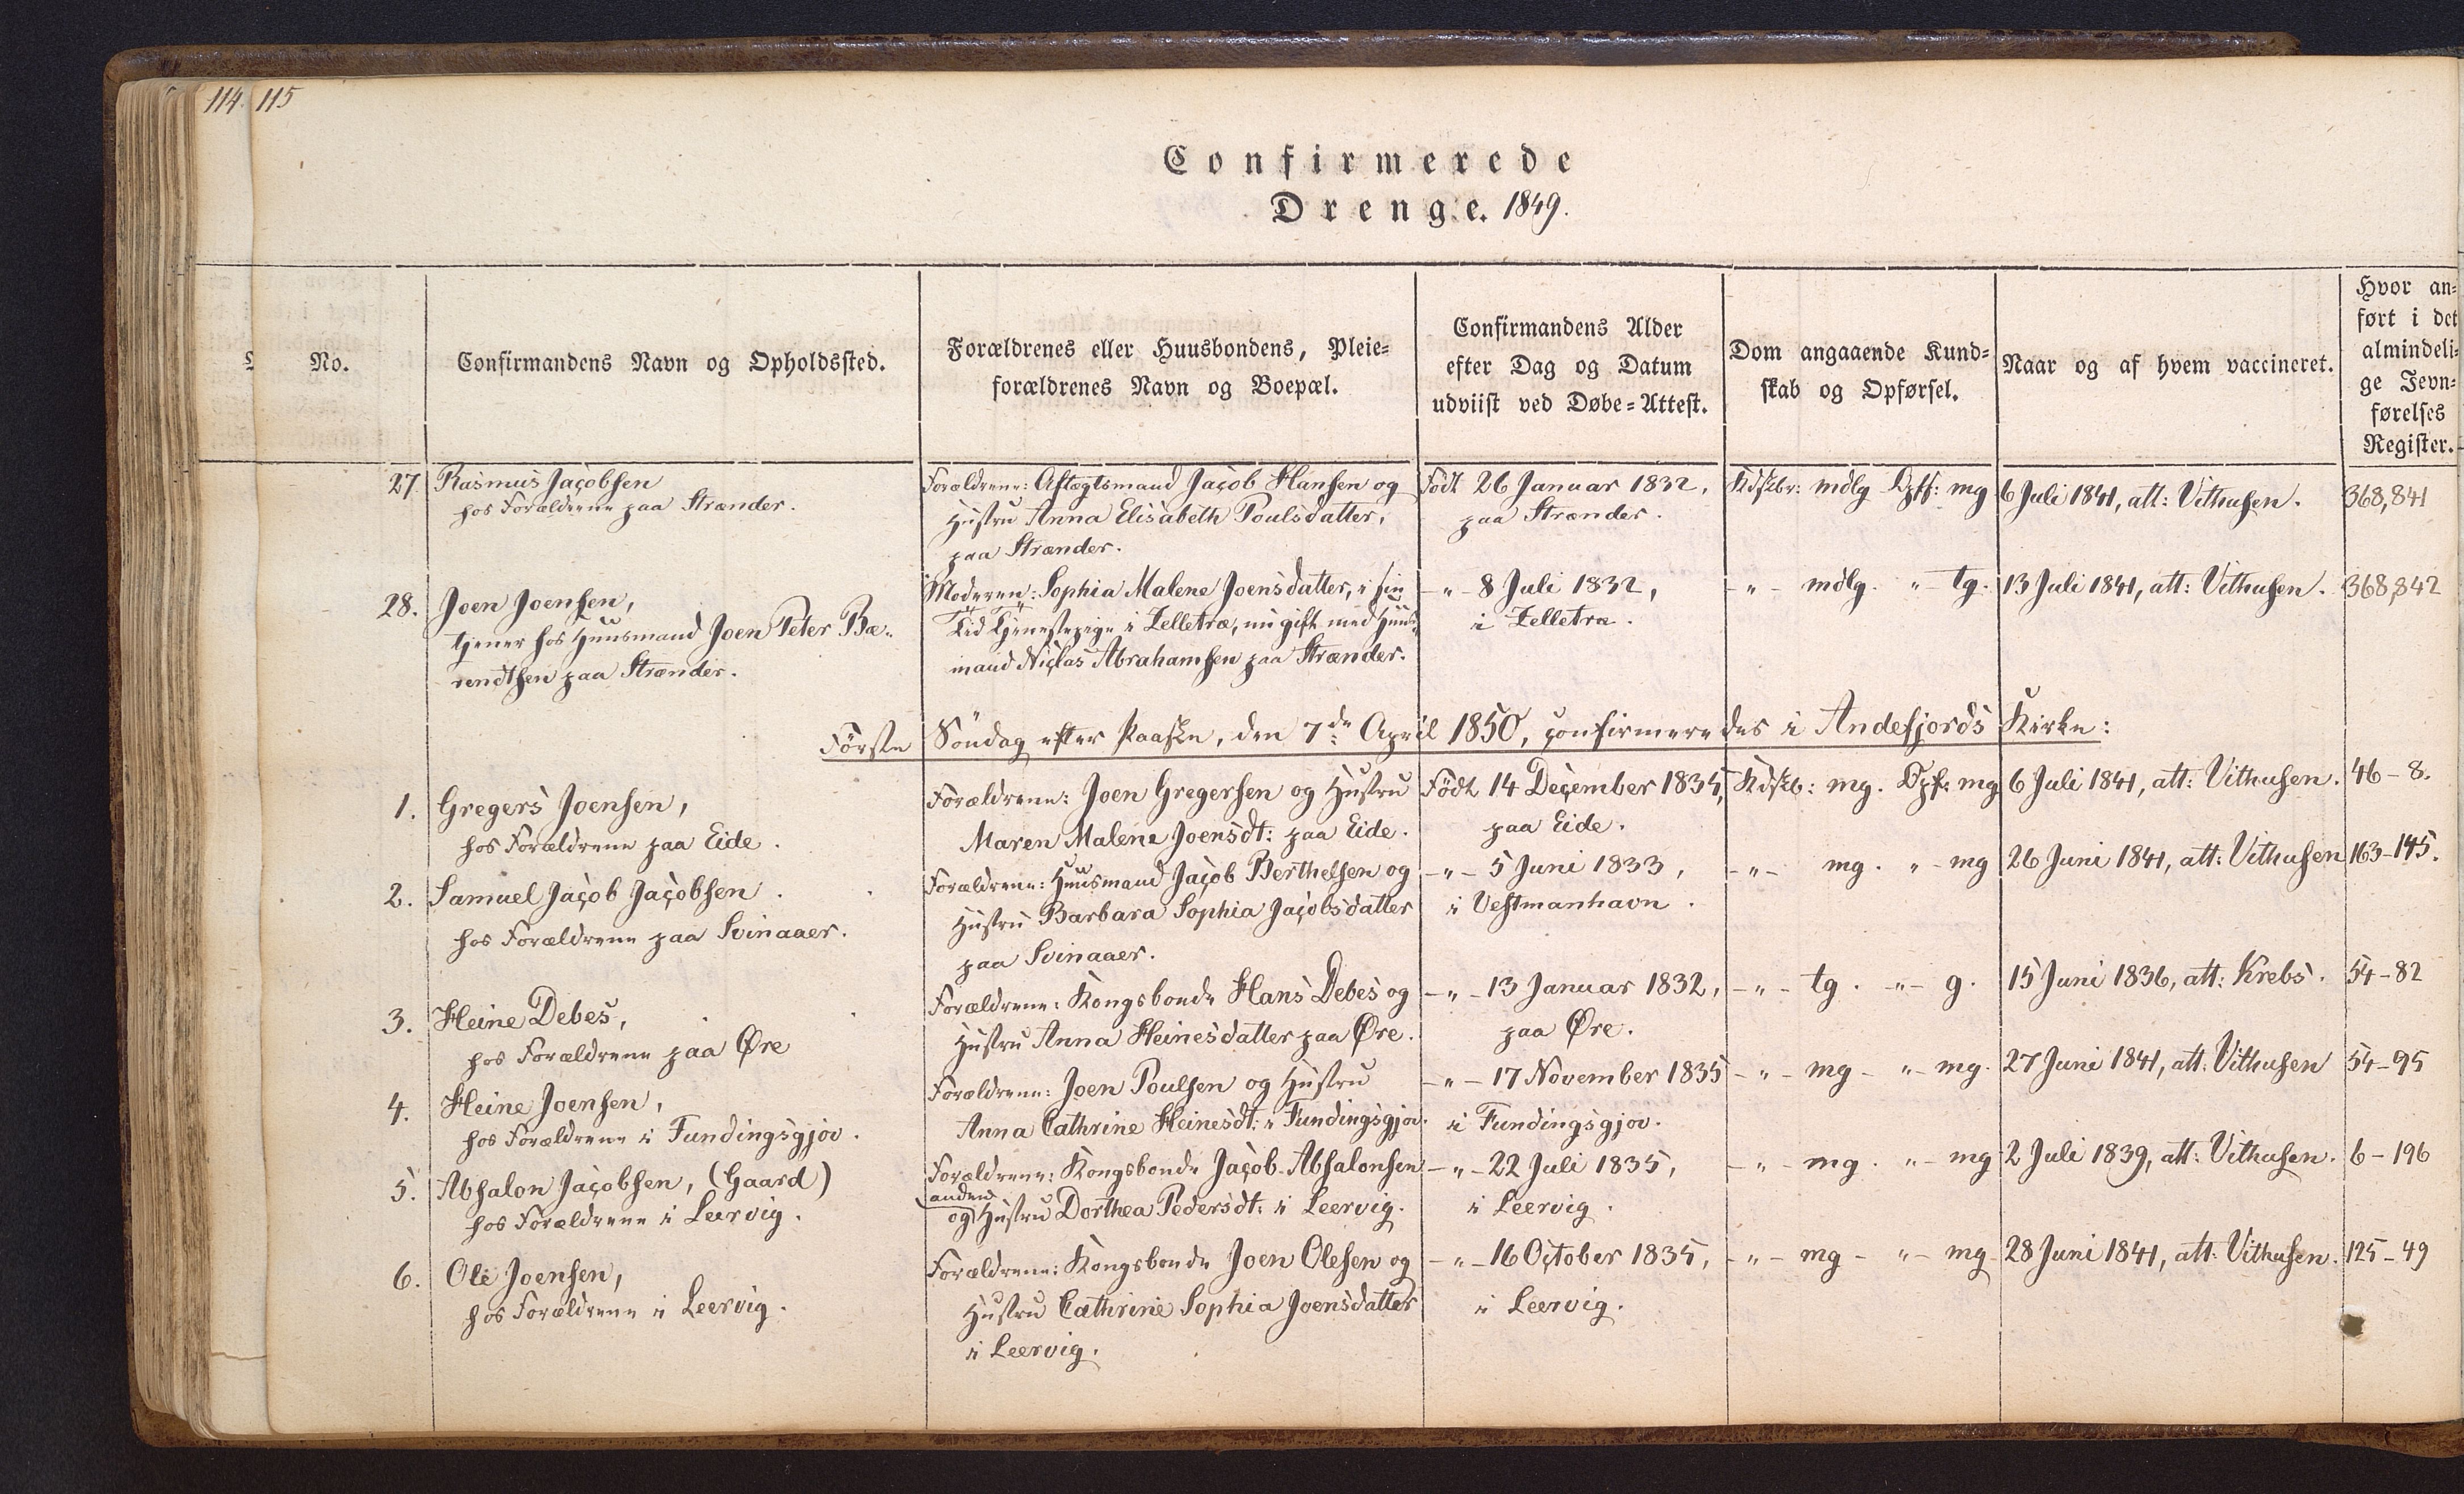 114. 115
Confirmerede
Drenge. 1849.
No.
Confirmandens Navn og Opholdssted.
Forældrenes eller Huusbondens, Pleie=
forældrenes Navn og Boepæl.
Confirmandens Alder
efter Dag og Datum
udviist ved Døbe=Attest.
Dom angaaende Kund=
skab og Opførsel.
Naar og af hvem vaccineret.
Hvor an=
ført i det
almindeli=
ge Jevn=
førelses
Register.
27. Rasmus Jacobsen
hos Forældrene paa Strænder.
Forældrene: Aftægtsmand Jacob Hansen og
Hustru Anna Elisabeth Poulsdatter,
paa Strænder.
Födt 26 Januar 1832,
paa Strænder.
Kdskbr: mdlg Opf: mg
6 Juli 1841, att: Vithusen.
368,841
28. Joen Joensen,
tjener hos Huusmand Joen Peter Bæ=
rendtsen paa Strænder.
Moderen: Sophia Malene Joensdatter, i sin
Tid Tjenestepige i Zelletræ, nu gift med Huus=
mand Niclas Abrahamsen paa Strænder.
-"- 8 Juli 1832,
i Zelletræ.
-"- mdlg. " tg.
13 Juli 1841, att: Vithusen.
368,842
Förste Söndag efter Paaske, den 7de April 1850, confirmeredes i Andefjords Kirke:
1. Gregers Joensen,
hos Forældrene paa Eide.
Forældrene: Joen Gregersen og Hustru
Maren Malene Joensdt: paa Eide.
Födt 14 December 1835,
paa Eide.
Kdskb: mg. Opf: mg
6 Juli 1841, att: Vithusen.
46-8.
2. Samuel Jacob Jacobsen
hos Forældrene paa Svinaaer.
Forældrene: Huusmand Jacob Berthelsen og
Hustru Barbara Sophia Jacobsdatter
paa Svinaaer.
-"- 5 Juni 1833,
i Vestmanhavn.
-"- mg. " - mg
26 Juni 1841, att: Vithusen
163-145.
3. Heine Debes,
hos Forældrene paa Øre
Forældrene: Kongsbonde Hans Debes og
Hustru Anna Heinesdatter paa Øre.
-"- 13 Januar 1832,
paa Øre.
-"- tg. -"- g.
15 Juni 1836, att: Krebs.
54-82
4. Heine Joensen,
hos Forældrene i Fundingsgjov.
Forældrene: Joen Poulsen og Hustru
Anna Cathrine Heinesdt: i Fundingsgjov.
-"- 17 November 1835
i Fundingsgjov.
-"- mg - "- mg.
27 Juni 1841, att: Vithusen
54-95
5. Absalon Jacobsen, (Gaard)
hos Forældrene i Leervig.
Forældrene: Kongsbonde Jacob Absalonsen
anden
og Hustru Dorthea Pedersdt: i Leervig.
-"- 22 Juli 1835,
i Leervig.
-"- mg. "- mg
2 Juli 1839, att: Vithusen.
6-196
6. Ole Joensen,
hos Forældrene i Leervig.
Forældrene: Kongsbonde Joen Olesen og
Hustru Cathrine Sophia Joensdatter
i Leervig.
-"- 16 October 1835,
i Leervig.
-"- mg - "- mg
28 Juni 1841, att: Vithusen.
125-49